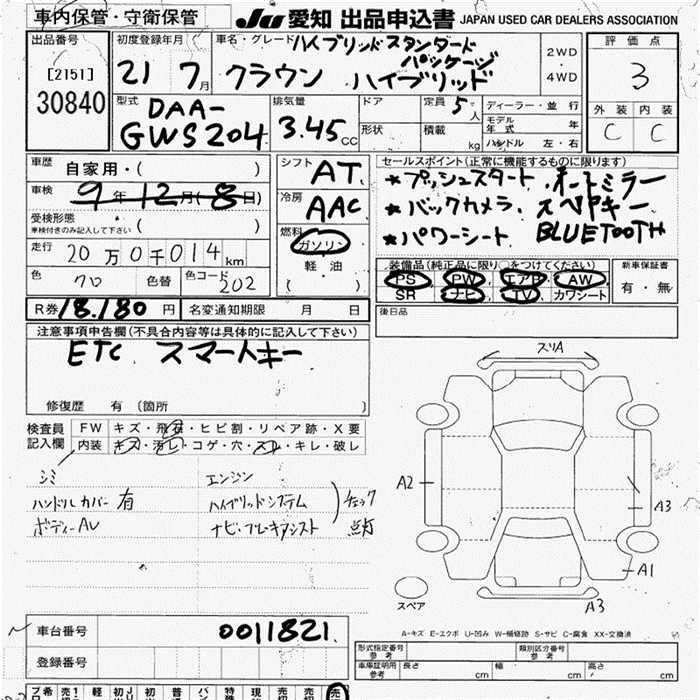 車内保管・守衛保管 JU 愛知 出品申込書 JAPAN USED CAR DEALERS ASSOCIATION
出品番号 [2151] 30840
初度登録年月 21 7月
車名・グレード ハイブリッドスタンダードパッケージ
クラウン ハイブリッド
2WD・4WD
評価点 3
外装 内装
C C
型式 DAA-GWS204
排気量 3.45cc
ドア 形状
定員 5人
積載 kg
ディーラー・並行
モデル年式 年
ハンドル 左・右
車歴 自家用・( )
車検 9年12月(8日)
受検形態 車検付きのみ記入して下さい ( )
走行 20万0千014km
色 クロ 色替 色コード 202
シフト AT
冷房 AAC
燃料 ガソリン
軽油
( )
セールスポイント(正常に機能するものに限ります)
★プッシュスタート オートミラー
★バックカメラ スペアキー
★パワーシート BLUETOOTH
装備品(純正品に限り○をつけてください)
PS PW エアB AW
SR ナビ TV カワシート
新車保証書
有・無
R券 18,180円 名変通知期限 月 日
後日品
注意事項申告欄(不具合内容等は具体的に記入して下さい)
ETC スマートキー
修復歴 有 (箇所 )
検査員記入欄
FW キズ・飛石・ヒビ割・リペア跡・X要
内装 キズ・汚レ・コゲ・穴・スレ・キレ・破レ
シミ エンジン
ハンドルカバー有 ハイブリッドシステム チェック
ボディーAU ナビ・ブレーキアシスト 点灯
スリA
A2
A3
A1
A3
スペア
A-キズ E-エクボ U-凹み W-補修跡 S-サビ C-腐食 XX-交換済
車台番号 0011821
登録番号
形式指定番号 参考
類別区分番号 参考
車庫証明用 参考 長さ cm 幅 cm 高さ cm